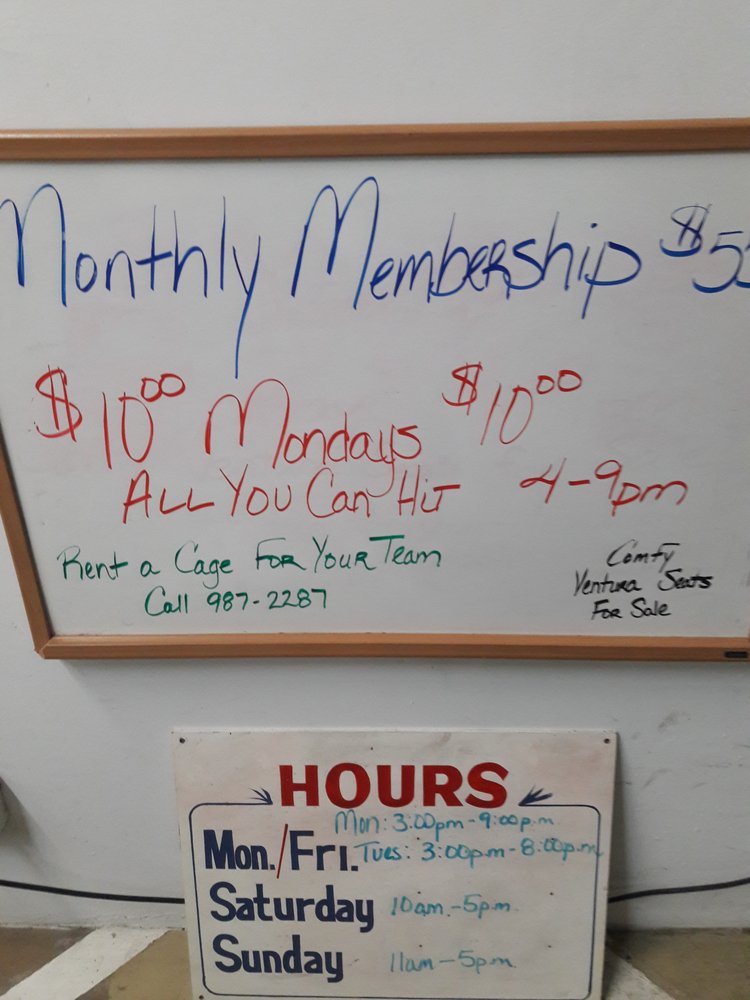 Monthly Membership $5
$10.00 Mondays $10.00
ALL You Can Hit 4-9pm
Rent a Cage For Your Team
Call 987-2287
Comfy
Ventura Seats
For Sale
HOURS
Mon./Fri. Mon: 3:00pm-9:00pm
Tues: 3:00pm-8:00pm
Saturday 10am-5pm
Sunday 11am-5pm